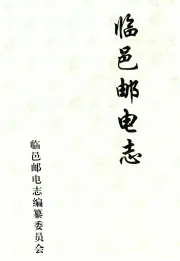 临邑邮电志
临邑邮电志编纂委员会